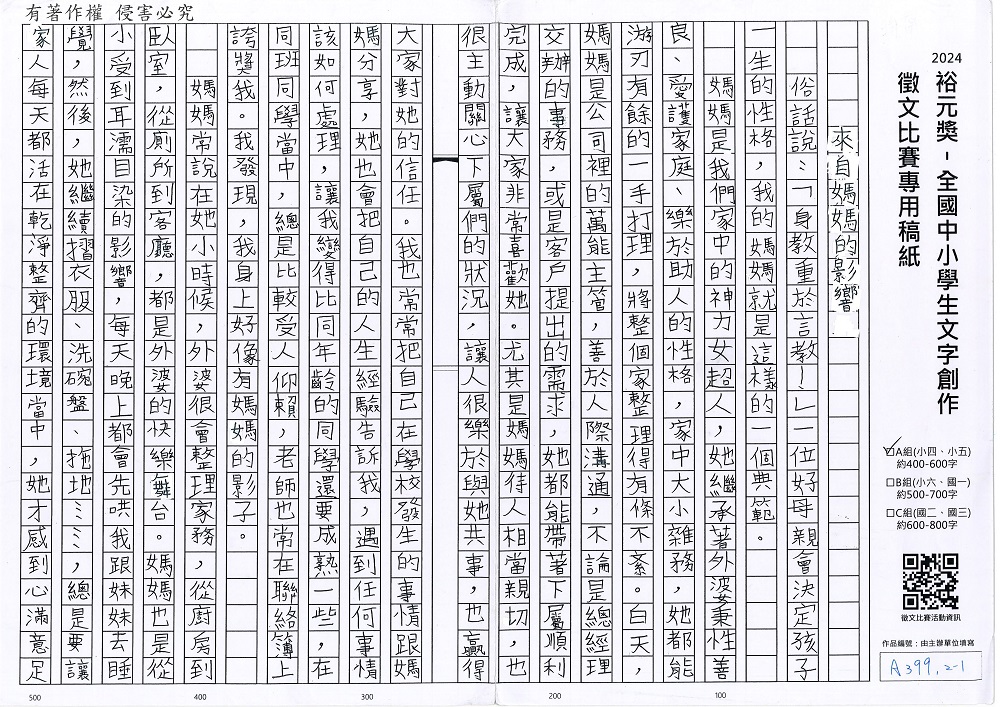 有著作權 侵害必究
2024
裕元獎-全國中小學生文字創作
徵文比賽專用稿紙
☑A組(小四、小五)
約400-600字
□B組(小六、國一)
約500-700字
□C組(國二、國三)
約600-800字
徵文比賽活動資訊
作品編號:由主辦單位填寫
A399,2-1
來自媽媽的影響
俗話說:「身教重於言教!」一位好母親會決定孩子
一生的性格,我的媽媽就是這樣的一個典範。
媽媽是我們家中的神力女超人,她繼承著外婆秉性善
良、愛護家庭、樂於助人的性格,家中大小雜務,她都能
游刃有餘的一手打理,將整個家整理得有條不紊。白天,
媽媽是公司裡的萬能主管,善於人際溝通,不論是總經理
交辦的事務,或是客戶提出的需求,她都能帶著下屬順利
完成,讓大家非常喜歡她。尤其是媽媽待人相當親切,也
很主動關心下屬們的狀況,讓人很樂於與她共事,也贏得
大家對她的信任。我也常常把自己在學校發生的事情跟媽
媽分享,她也會把自己的人生經驗告訴我,遇到任何事情
該如何處理,讓我變得比同年齡的同學還要成熟一些,在
同班同學當中,總是比較受人仰賴,老師也常在聯絡簿上
誇獎我。我發現,我身上好像有媽媽的影子。
媽媽常說在她小時候,外婆很會整理家務,從廚房到
臥室,從廁所到客廳,都是外婆的快樂舞台。媽媽也是從
小受到耳濡目染的影響,每天晚上都會先哄我跟妹妹去睡
覺,然後,她繼續摺衣服、洗碗盤、拖地……,總是要讓
家人每天都活在乾淨整齊的環境當中,她才感到心滿意足
100
200
300
400
500